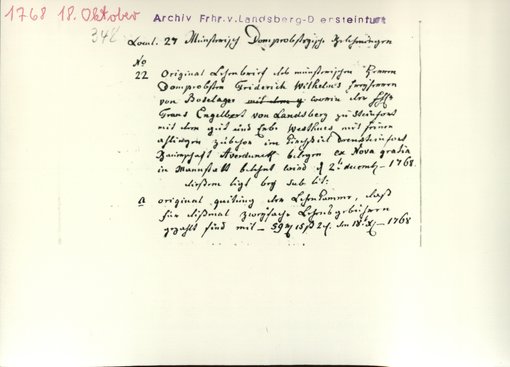 1768 18. Oktober
Archiv Frhr.v.Landsberg-D ersteinfurt
348
Loml. 27 Münsterisch Domprobsteyische Belehnungen
No
22 Original Lehenbrief des münsterischen Herren
Domprobsten Friderich Wilhelm's freyherren
von Boselager worin der
Frans Engelbert von Landsberg zu Steinfort
mit dem gut und Erbe Westhues mit seinen
zubehor im Kirchspiel drensteinfort
Baurschaft belegen ex Nova gratia
in Mannstatt belehnt wird d 2t decemb - 1768
diesem ligt bey sub lit:
a original quitung der Lehnkammer, daß
für dißmal zweyfache Lehensgebühren
gezahlt sind mit - 59 15 ß 2 den 18t - 1768